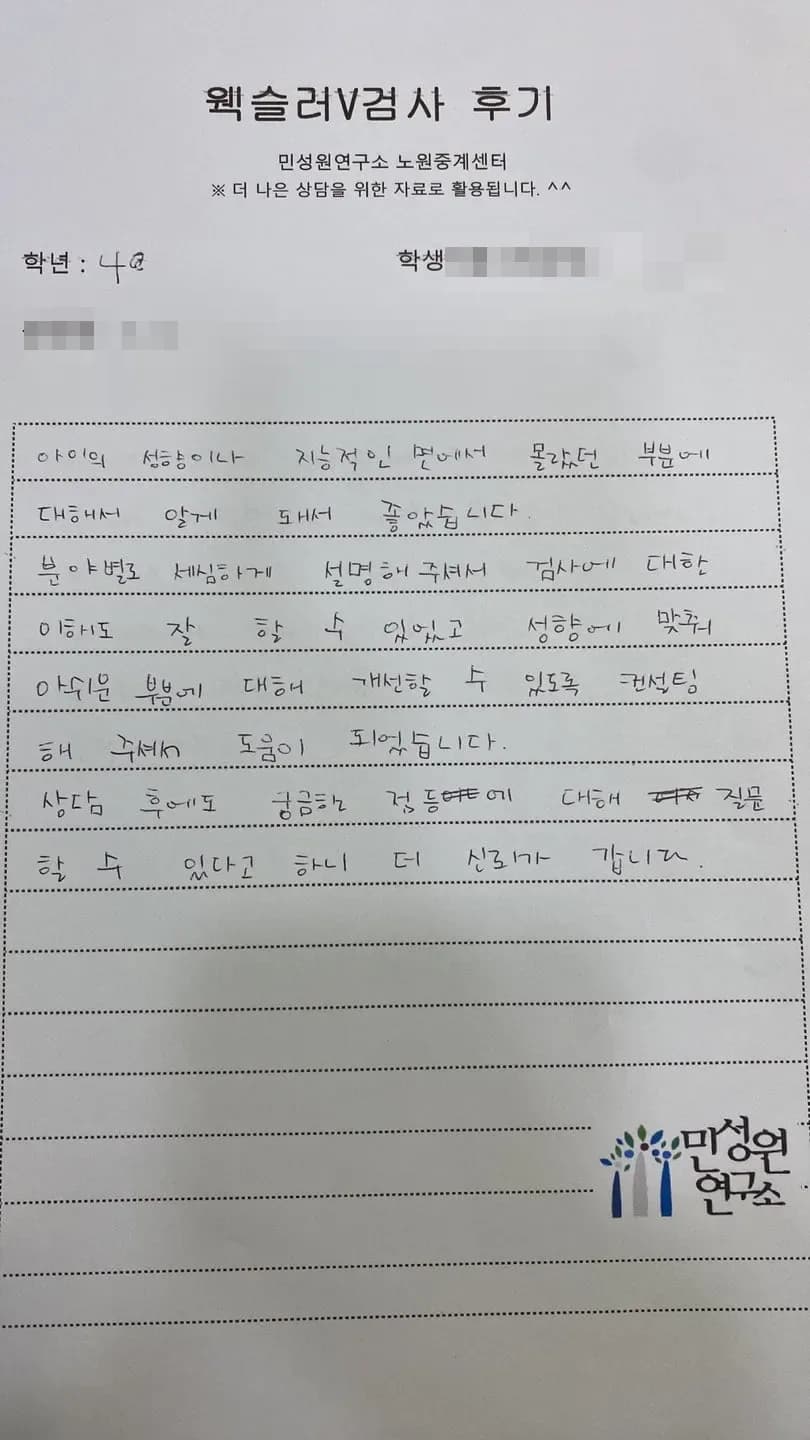 웩슬러V검사 후기
민성원연구소 노원중계센터
※ 더 나은 상담을 위한 자료로 활용됩니다. ^^
학년 : 4
학생
아이의 성향이나 지능적인 면에서 몰랐던 부분에
대해서 알게 돼서 좋았습니다.
분야별로 세심하게 설명해 주셔서 검사에 대한
이해도 잘 할 수 있었고 성향에 맞춰
아쉬운 부분에 대해 개선할 수 있도록 컨설팅
해 주셔서 도움이 되었습니다.
상담 후에도 궁금한 점 등에 대해 질문
할 수 있다고 하니 더 신뢰가 갑니다.
민성원
연구소